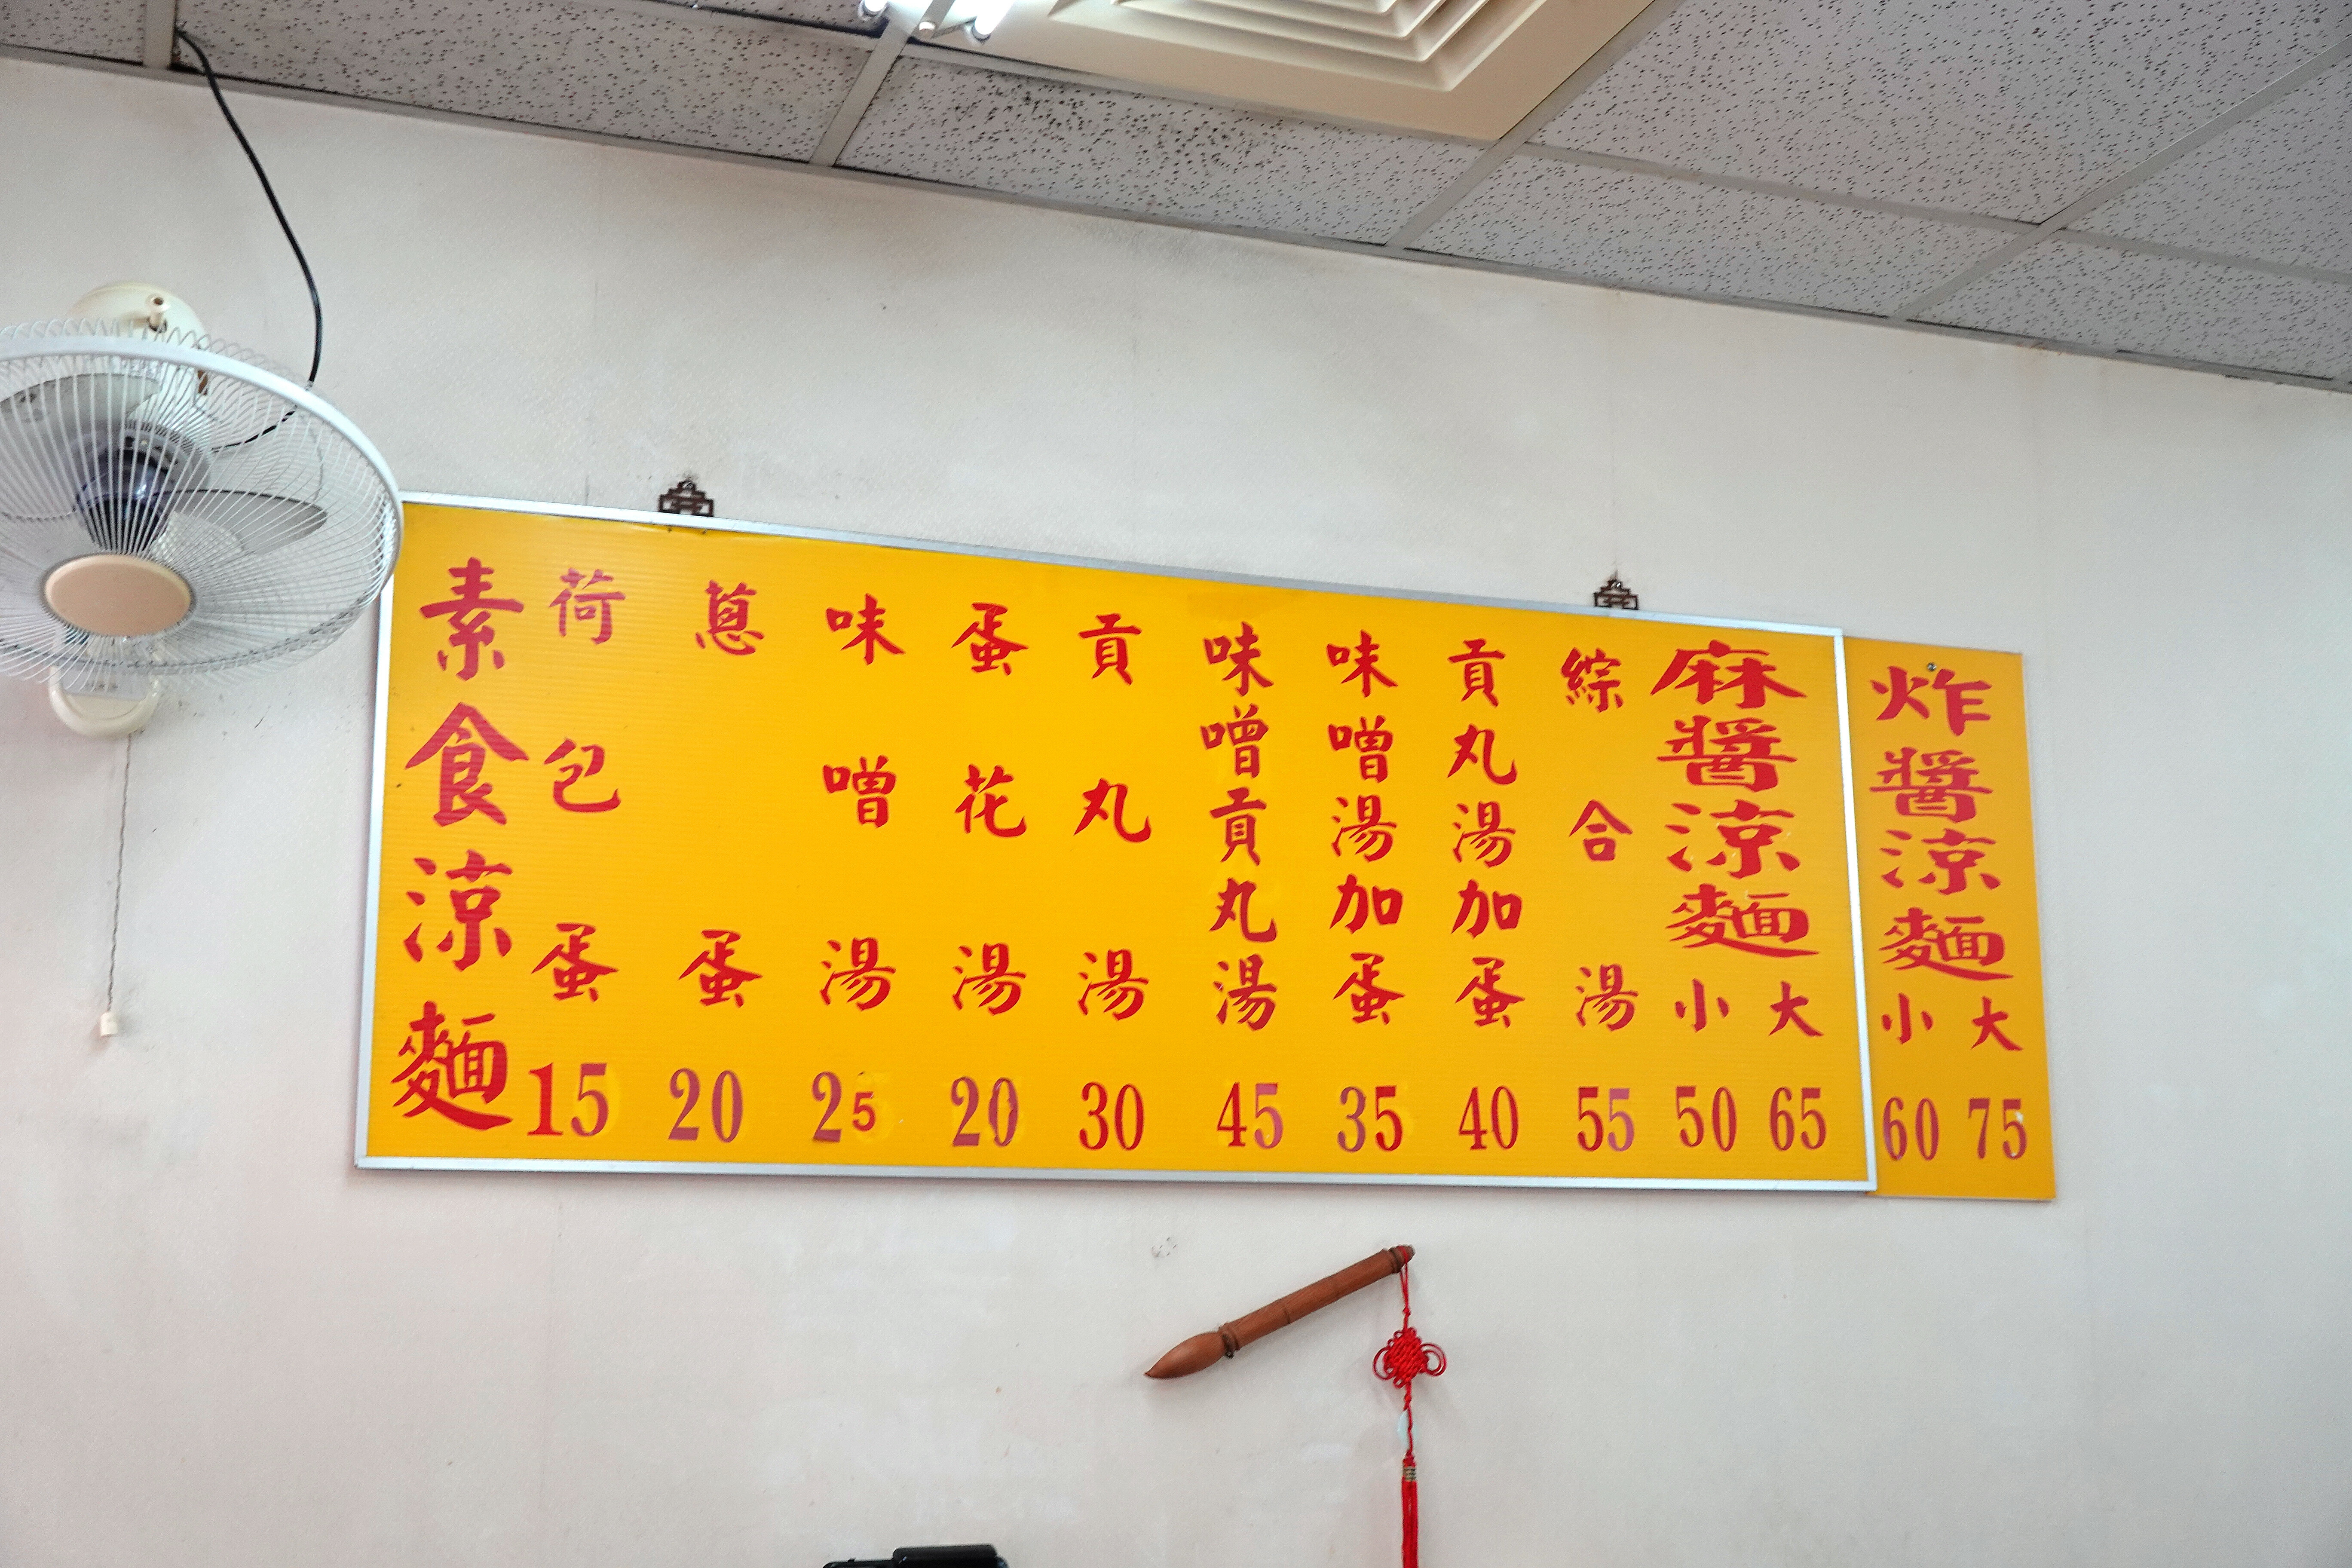 炸醬涼麵
小 大
60 75
麻醬涼麵
小 大
50 65
綜合湯
55
貢丸湯加蛋
40
味噌湯加蛋
35
味噌貢丸湯
45
貢丸湯
30
蛋花湯
20
味噌湯
25
蔥蛋
20
荷包蛋
15
素食涼麵